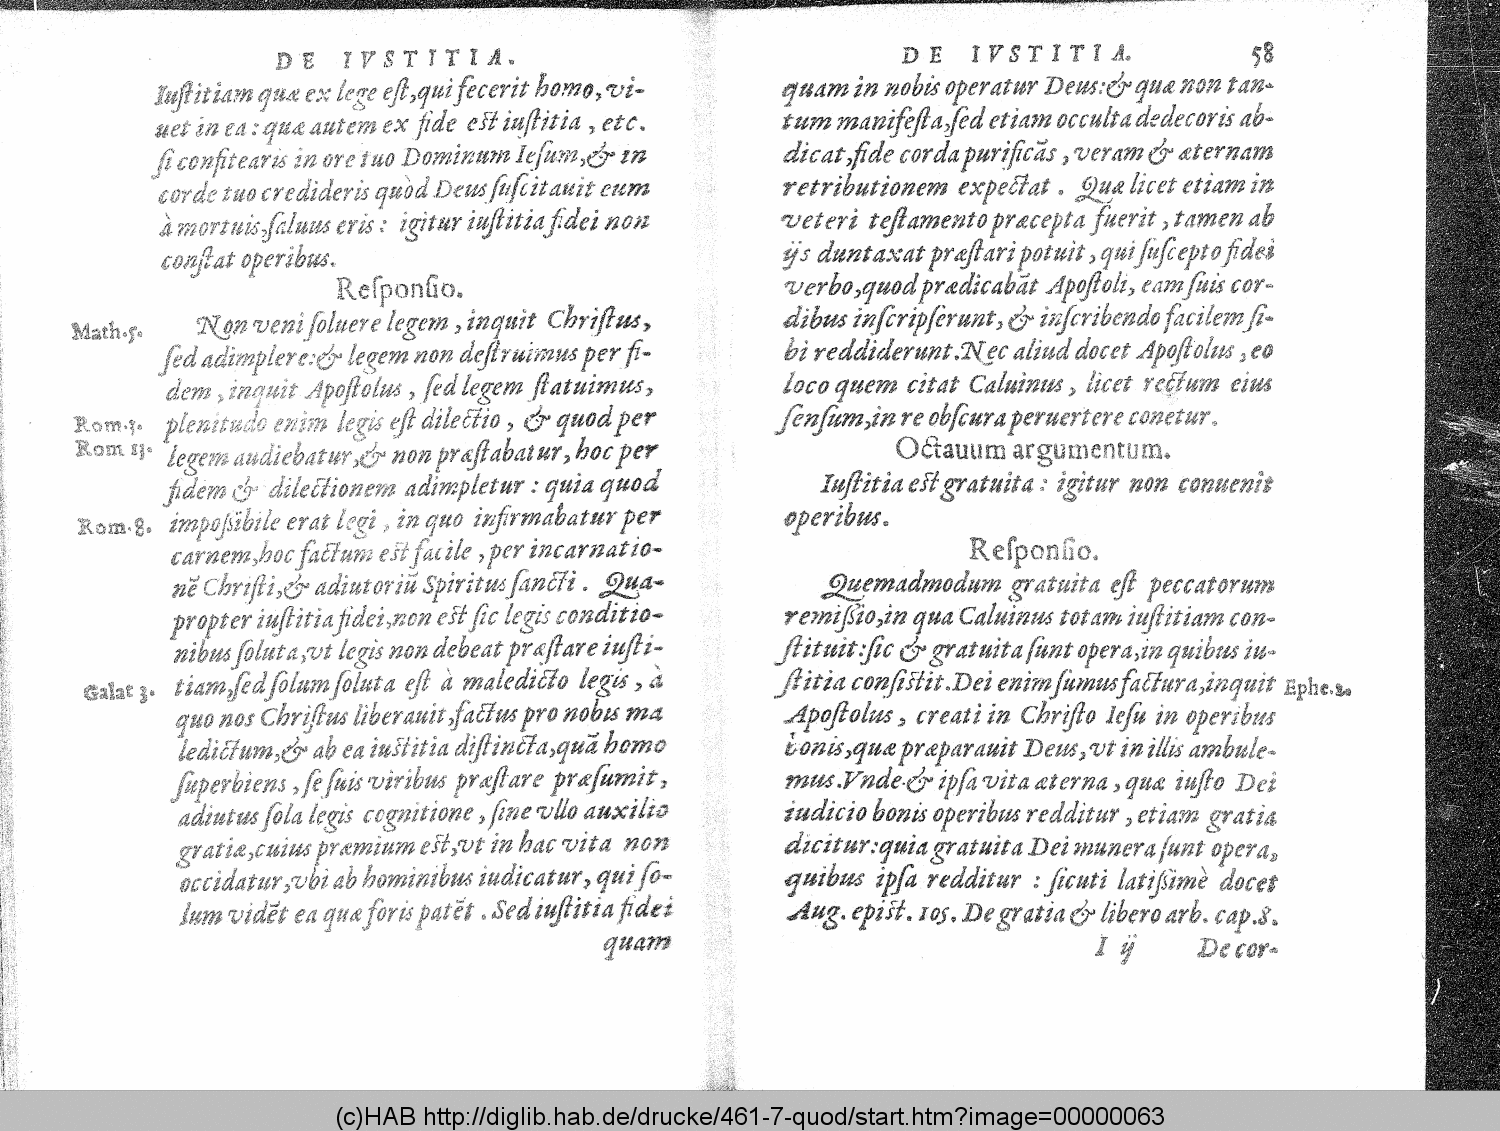 DE IVSTITIA.
Iuſtitiam quæ ex lege eſt, qui fecerit homo, vi-
uet in ea: quæ autem ex fide eſt iuſtitia, etc.
ſi confitearis in ore tuo Dominum Ieſum, & in
corde tuo credideris quòd Deus ſuſcitauit eum
à mortuis, ſaluus eris: igitur iuſtitia fidei non
conſtat operibus.
Reſponſio.
Math. 5.
Non veni ſoluere legem, inquit Chriſtus,
ſed adimplere: & legem non deſtruimus per fi-
dem, inquit Apoſtolus, ſed legem ſtatuimus,
Rom. 3.
plenitudo enim legis eſt dilectio, & quod per
Rom 13.
legem audiebatur, & non præſtabatur, hoc per
fidem & dilectionem adimpletur: quia quod
Rom. 8.
impoſsibile erat legi, in quo infirmabatur per
carnem, hoc factum eſt facile, per incarnatio-
nē Chriſti, & adiutoriū Spiritus ſancti. Qua-
propter iuſtitia fidei, non eſt ſic legis conditio-
nibus ſoluta, vt legis non debeat præſtare iuſti-
Galat 3.
tiam, ſed ſolum ſoluta eſt à maledicto legis, à
quo nos Chriſtus liberauit, factus pro nobis ma
ledictum, & ab ea iuſtitia diſtincta, quā homo
ſuperbiens, ſe ſuis viribus præſtare præſumit,
adiutus ſola legis cognitione, ſine vllo auxilio
gratiæ, cuius præmium eſt, vt in hac vita non
occidatur, vbi ab hominibus iudicatur, qui ſo-
lum vidēt ea quæ foris patēt. Sed iuſtitia fidei
quam
DE IVSTITIA. 58
quam in nobis operatur Deus: & quæ non tan-
tum manifeſta, ſed etiam occulta dedecoris ab-
dicat, fide corda purificās, veram & æternam
retributionem expectat. Quæ licet etiam in
veteri teſtamento præcepta fuerit, tamen ab
ijs duntaxat præſtari potuit, qui ſuſcepto fidei
verbo, quod prædicabāt Apoſtoli, eam ſuis cor-
dibus inſcripſerunt, & inſcribendo facilem ſi-
bi reddiderunt. Nec aliud docet Apoſtolus, eo
loco quem citat Caluinus, licet rectum eius
ſenſum, in re obſcura peruertere conetur.
Octauum argumentum.
Iuſtitia eſt gratuita: igitur non conuenit
operibus.
Reſponſio.
Quemadmodum gratuita eſt peccatorum
remiſsio, in qua Caluinus totam iuſtitiam con-
ſtituit: ſic & gratuita ſunt opera, in quibus iu-
ſtitia conſiſtit. Dei enim ſumus factura, inquit
Ephe. 2.
Apoſtolus, creati in Chriſto Ieſu in operibus
bonis, quæ præparauit Deus, vt in illis ambule-
mus. Vnde & ipſa vita æterna, quæ iuſto Dei
iudicio bonis operibus redditur, etiam gratia
dicitur: quia gratuita Dei munera ſunt opera,
quibus ipſa redditur: ſicuti latiſsimè docet
Aug. epiſt. 105. De gratia & libero arb. cap. 8.
I ij De cor-
(c)HAB http://diglib.hab.de/drucke/461-7-quod/start.htm?image=00000063